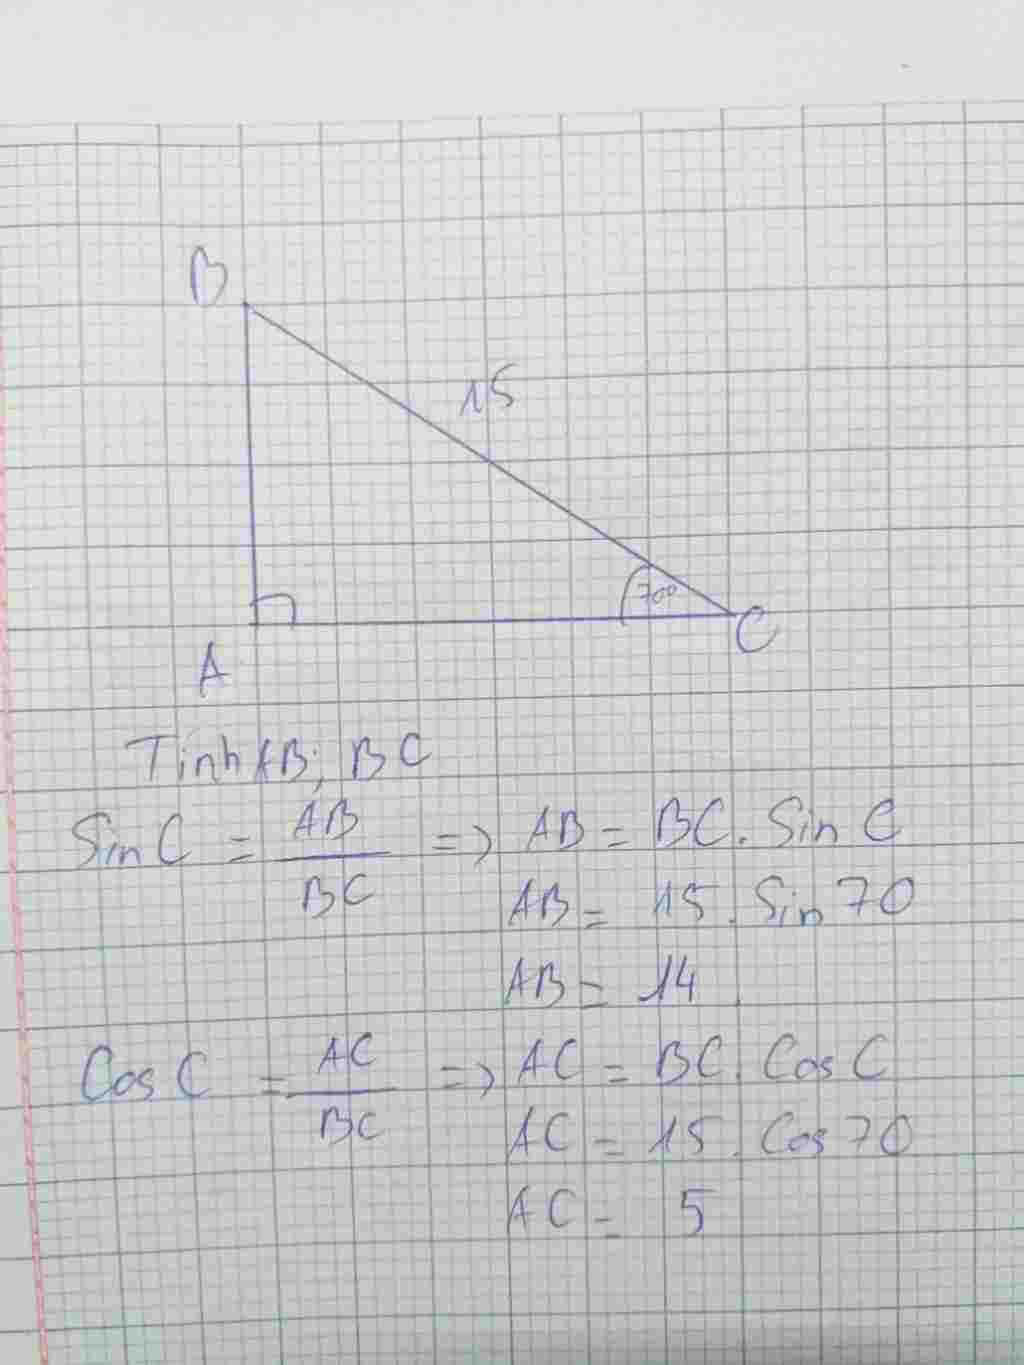 B
15
70°
A
C
Tính AB; BC
Sin C = AB / BC => AB = BC. Sin C
AB = 15. Sin 70
AB = 14
Cos C = AC / BC => AC = BC. Cos C
AC = 15. Cos 70
AC = 5